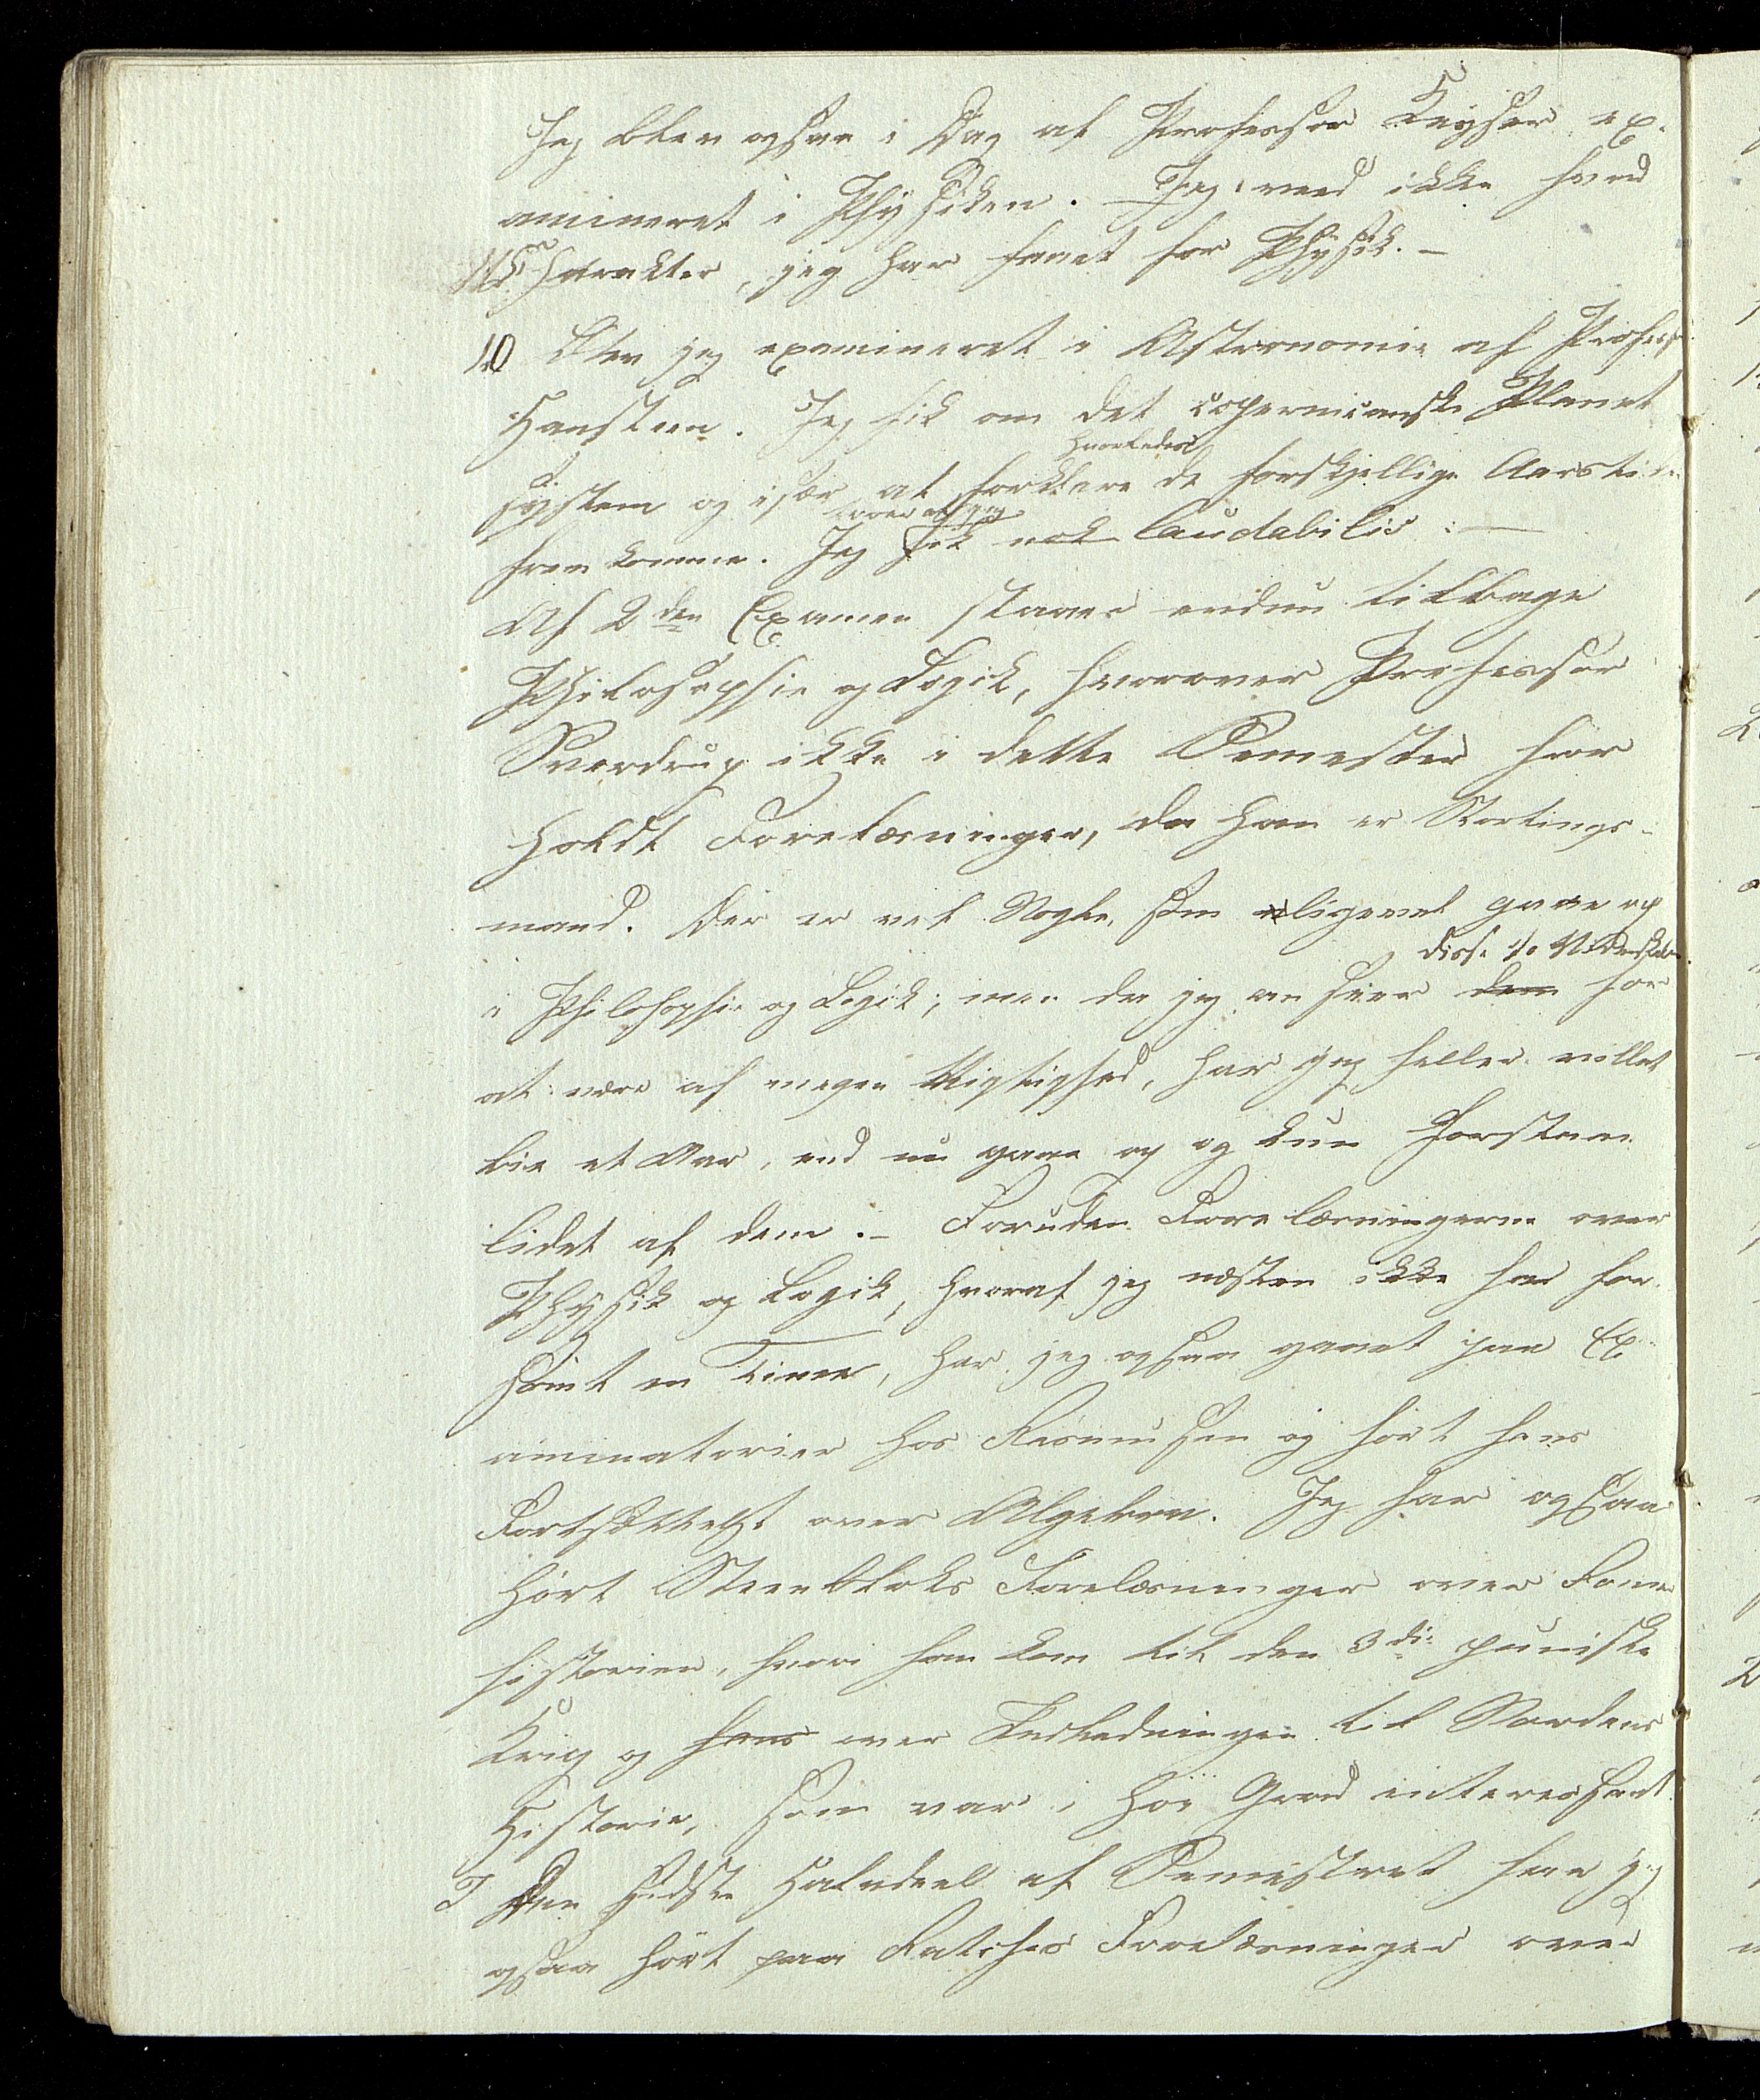 Jeg blev ogsaa i Dag af Professor Keyser ex-
amineret i Physiken. Jeg veed ikke hvad
Charakter, jeg har faaet for Physik. –
10 Blev jeg examineret i Astronomie af Profess
Hansteen. Jeg fik om det copernicanske Planet
hvorledes
system og især at forklare de forskjellige Aarstider
fremkomme. Jeg fik nok laudabilis: –
Af 2den Examen staaer endnu tilbage
Philosophie og Logik, hvorover Professor
Sverdrup ikke i dette Semester har
holdt Forelæsninger, da han er Stortings-
mand. Der er vel Nogle, som ligevel gaae op
disse to Videnskaber
i Philosophie og Logik; men da jeg anseer dem for
at være af megen Vigtighed, har jeg heller villet
bie et Aar, end nu gaae op og kun forstaae
lidet af dem. – Foruden Forelæsningerne over
Physik og Logik, hvoraf jeg næsten ikke har for-
sömt en Time, har jeg ogsaa gaaet paa Ex-
aminatorier hos Rasmusen og hört hans
Fortsættelse over Algebra. Jeg har ogsaa
hört Steenbloks Forelæsninger over Romer
historien, hvori han kom til den 3die puniske
Krig og hans over Indledningen til Nordens
Historie, som var i höi Grad interessant
I Den sidste Halvdeel af Semestret har jeg
ogsaa hört paa Rathkes Forelæsninger over